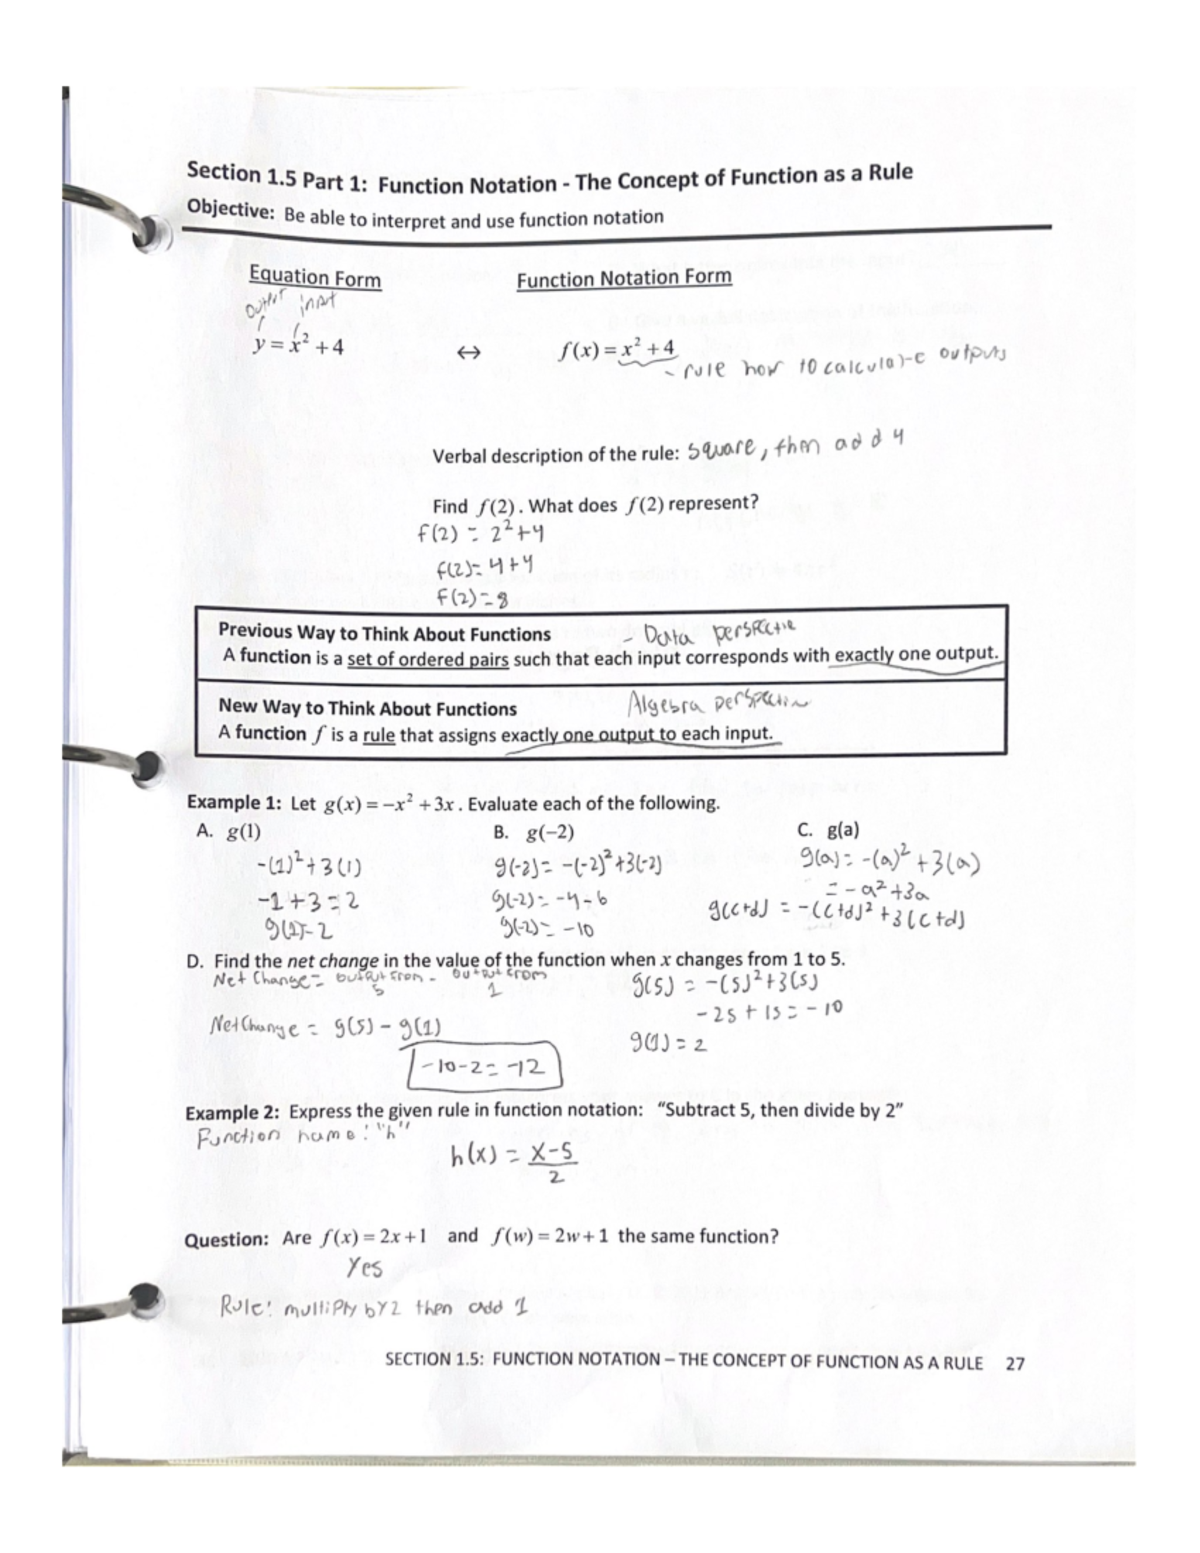 Section 1.5 Part 1: Function Notation - The Concept of Function as a Rule
Objective: Be able to interpret and use function notation
Equation Form Function Notation Form
output input
y = x² + 4 ↔ f(x) = x² + 4
- rule how to calculate outputs
Verbal description of the rule: square, then add 4
Find f(2). What does f(2) represent?
f(2) = 2² + 4
f(2) = 4 + 4
f(2) = 8
Previous Way to Think About Functions - Data perspective
A function is a set of ordered pairs such that each input corresponds with exactly one output.
New Way to Think About Functions Algebra perspective
A function f is a rule that assigns exactly one output to each input.
Example 1: Let g(x) = −x² + 3x. Evaluate each of the following.
A. g(1) B. g(−2) C. g(a)
-(1)² + 3(1) g(-2) = -(-2)² + 3(-2) g(a) = -(a)² + 3(a)
-1 + 3 = 2 g(-2) = -4 - 6 = -a² + 3a
g(1) = 2 g(-2) = -10 g(c+d) = -(c+d)² + 3(c+d)
D. Find the net change in the value of the function when x changes from 1 to 5.
Net Change = output from 5 - output from 1 g(5) = -(5)² + 3(5)
-25 + 15 = -10
Net Change = g(5) - g(1) g(1) = 2
-10 - 2 = -12
Example 2: Express the given rule in function notation: “Subtract 5, then divide by 2”
Function name: "h"
h(x) = x-5
2
Question: Are f(x) = 2x + 1 and f(w) = 2w + 1 the same function?
Yes
Rule: multiply by 2 then add 1
SECTION 1.5: FUNCTION NOTATION – THE CONCEPT OF FUNCTION AS A RULE 27